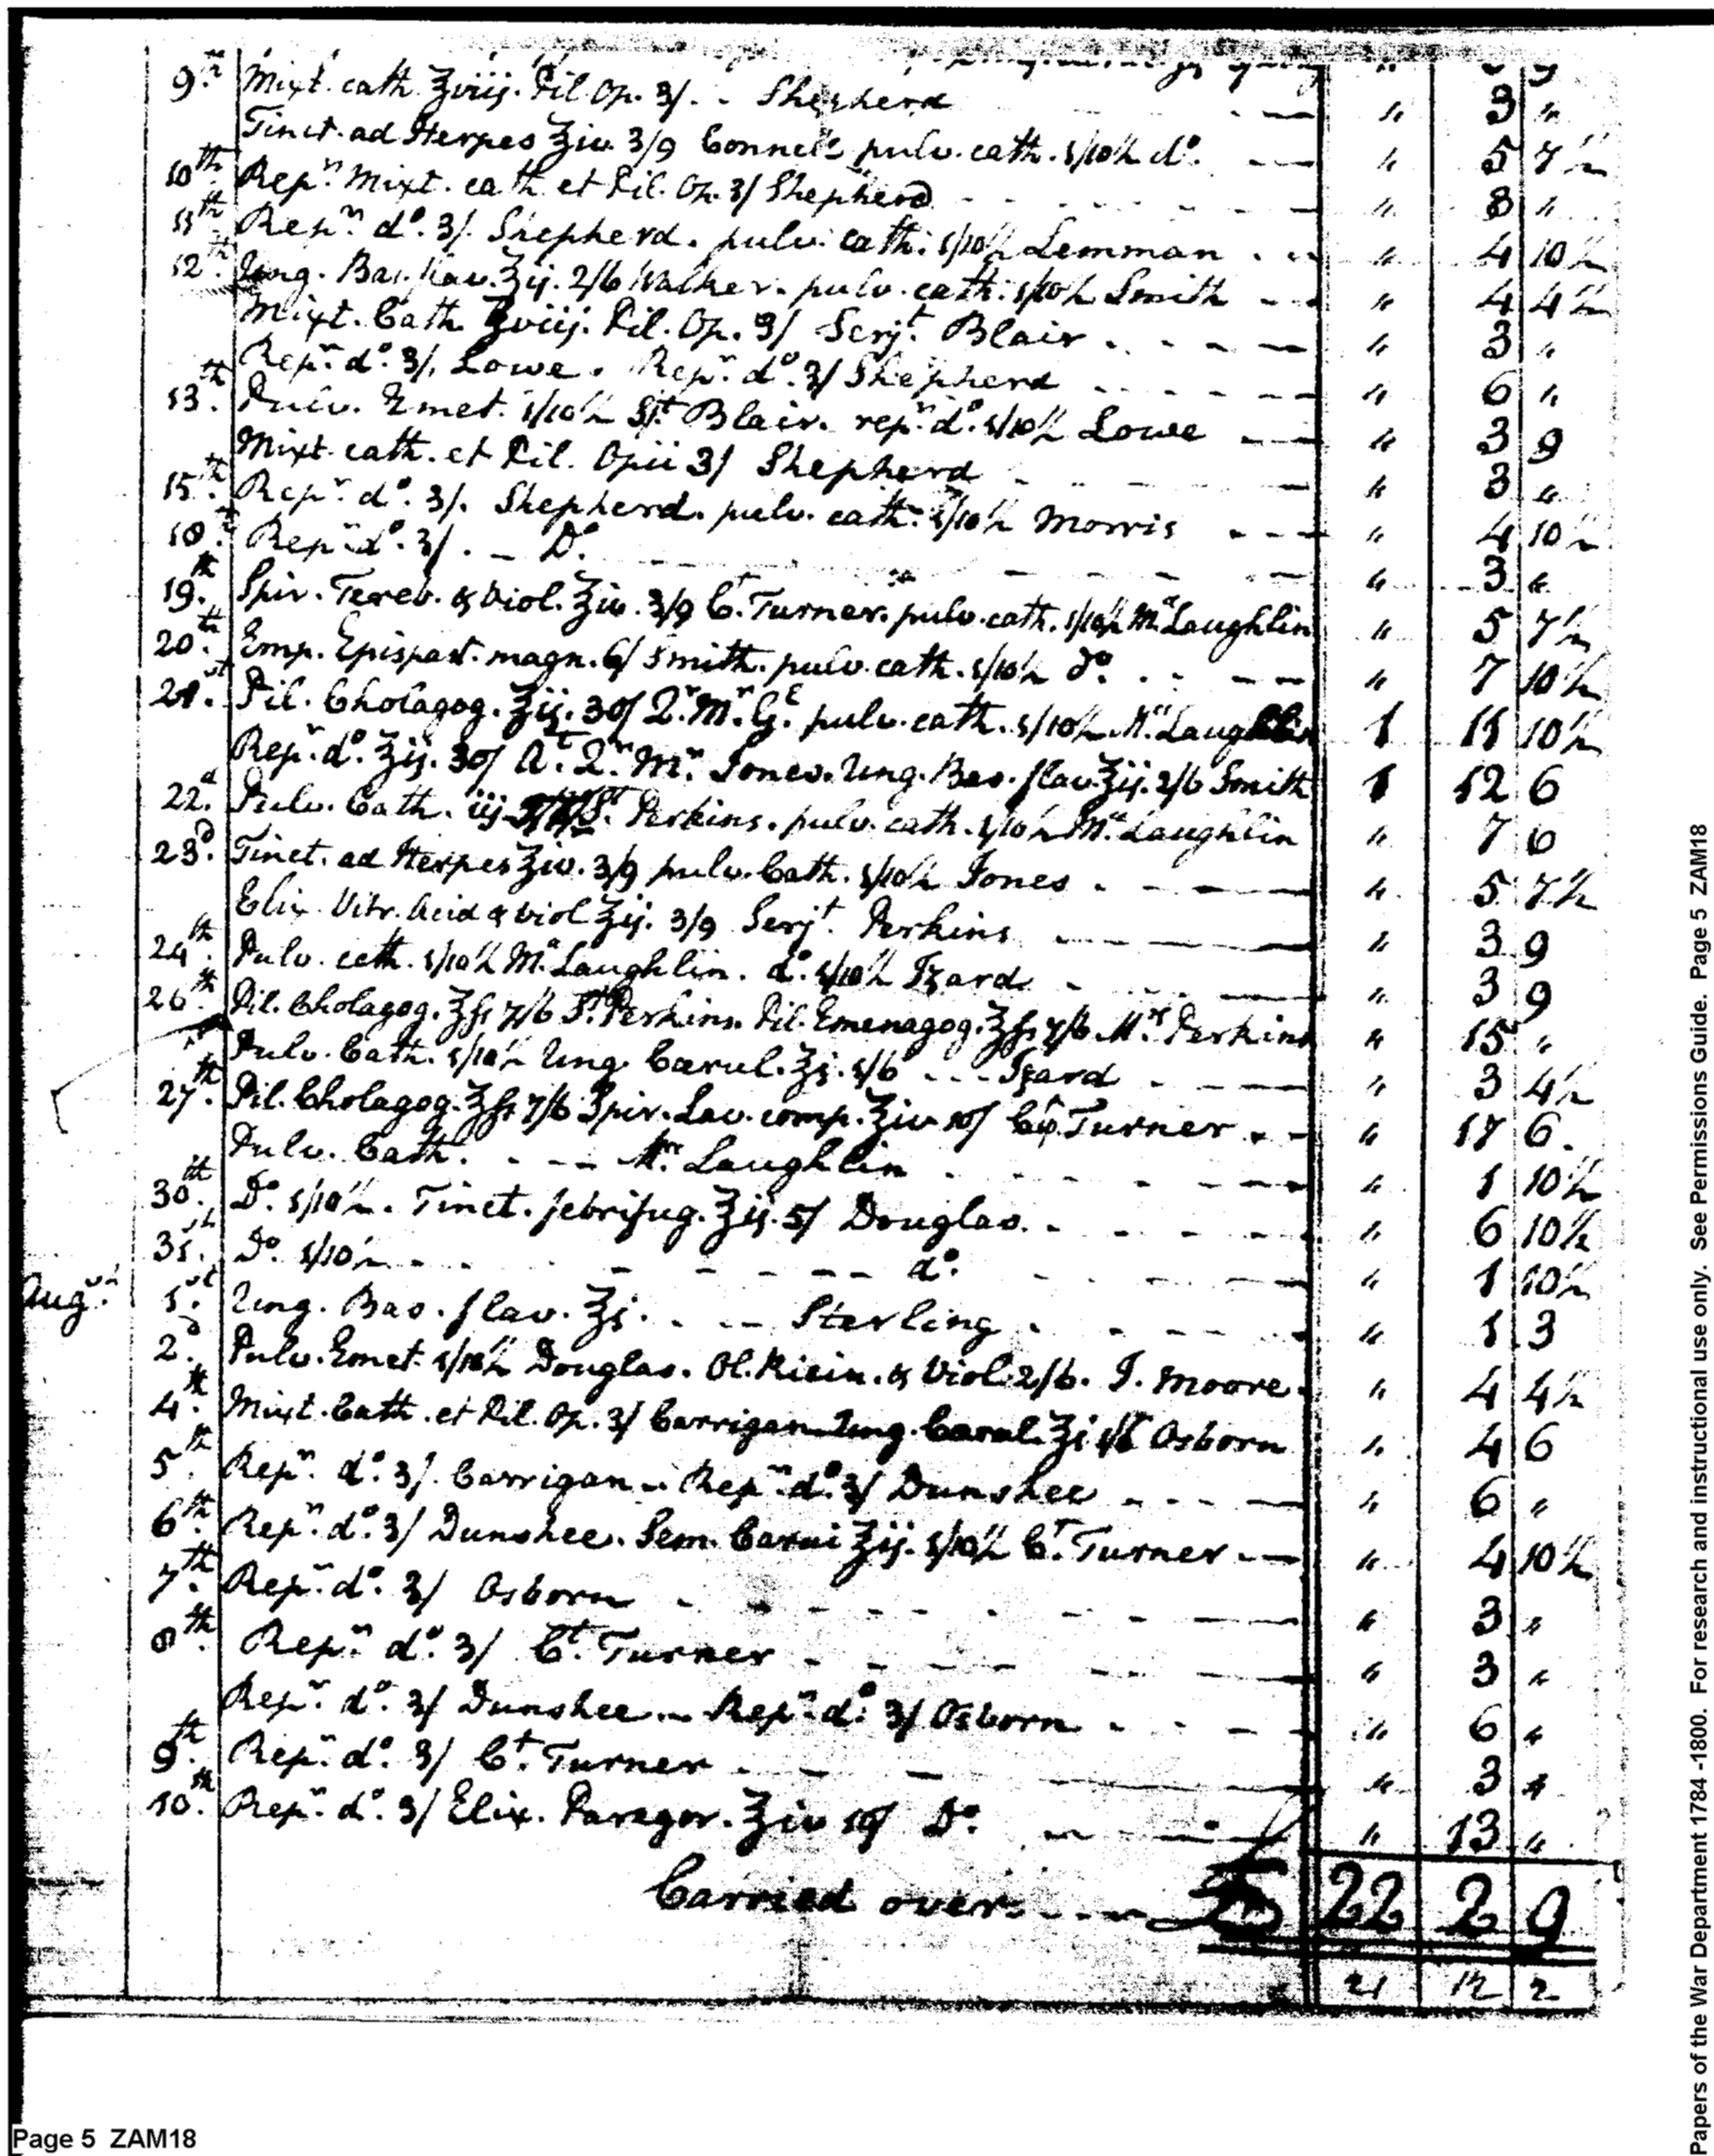 9th Mixt. cath ʒviij. Pil. Op. 3/. - Shepherd - — " 3 "
Tinct. ad Herpes ʒiv. 3/9 Connell pulv. cath. 1/10½ do. - — " 5 7½
10th Repn. Mixt. cath et Pil. Op. 3/ Shepherd - - - - — " 3 "
11th Repn. do. 3/. Shepherd. pulv. cath. 1/10½ Lemman . - " 4 10½
12th Ung. Bas. flav. ʒij. 2/6 Walker. pulv. cath. 1/10½ Smith - - " 4 4½
Mixt. Cath ʒviij. Pil. Op. 3/ Serjt. Blair . - - — " 3 "
Repn. do. 3/. Lowe. Repn. do. 3/ Shepherd - - - - — " 6 "
13th Pulv. Emet. 1/10½ Sjt. Blair. repn. do. 1/10½ Lowe - — " 3 9
Mixt cath. et Pil. Opii 3/ Shepherd - - - — " 3 "
15th Repn. do. 3/. Shepherd. pulv. cath. 1/10½ Morris - - - " 4 10½
18th Repn. do. 3/. — Do. - - - - — " 3 "
19th Spir. Tereb. & Viol. ʒiv. 3/9 Ct. Turner. pulv. cath. 1/10½ McLaughlin " 5 7½
20th Emp. Epispast. magn. 6/ Smith. pulv. cath. 1/10½ Do. . - — — " 7 10½
21st Pil. Cholagog. ʒij. 30/ Qr. Mr. Gl. pulv. cath. 1/10½ McLaughlin 1 11 10½
Repn. do. ʒij. 30/ At. Qr. Mr. Jones. Ung. Bas. flav. ʒij. 2/6 Smith 1 12 6
22d Pulv. Cath. iij Perkins. pulv. cath. 1/10½ McLaughlin " 7 6
23d Tinct. ad Herpes ʒiv. 3/9 pulv. Cath. 1/10½ Jones . - — — " 5 7½
Elix. Vitr. Acid & Viol ʒij. 3/9 Serjt. Perkins — — — " 3 9
24th Pulv. cath. 1/10½ McLaughlin. do. 1/10½ Izard - - — " 3 9
26th Pil. Cholagog. ʒſs 7/6 St. Perkins. Pil. Emenagog. ʒſs 7/6 Mrs. Perkins " 15 "
Pulv. Cath. 1/10½ Ung. Cœrul. ʒj. 1/6 - - - Izard - - — " 3 4½
27th Pil. Cholagog. ʒſs 7/6 Spir. Lav. comp. ʒiv 10/ Cap. Turner . - " 17 6.
Pulv. Cath. - - - McLaughlin - - - — " 1 10½
30th Do. 1/10½. Tinct. febrifug. ʒij. 5/ Douglas. - - - - " 6 10½
31st Do. 1/10½ - - - - — do. - - - " 1 10½
Augt. 1st Ung. Bas. flav. ʒj. - - — Sterling - - - - " 1 3
2d Pulv. Emet. 1/10½ Douglas. Ol. Ricin. & Viol. 2/6. J. Moore - " 4 4½
4th Mixt. Cath. et Pil. Op. 3/ Carrigan. Ung. Cœrul. ʒj 1/6 Osborn " 4 6
5th Repn. do. 3/. Carrigan - Repn. do. 3/ Dunshee - - - — " 6 "
6th Repn. do. 3/ Dunshee. Sem. Carui ʒij. 1/10½ Ct. Turner - — " 4 10½
7th Repn. do. 3/ Osborn - - - - - — " 3 "
8th Repn. do. 3/ Ct. Turner - - - - — " 3 "
Repn. do. 3/ Dunshee - Repn. do. 3/ Osborn - - - — " 6 "
9th Repn. do. 3/ Ct. Turner - - - — " 3 "
10th Repn. do. 3/ Elix. Paregor. ʒiv 10/ Do. - — - " 13 "
Carried over - - - £ 22 2 9
21 12 2
Page 5 ZAM18
Papers of the War Department 1784 -1800. For research and instructional use only. See Permissions Guide. Page 5 ZAM18